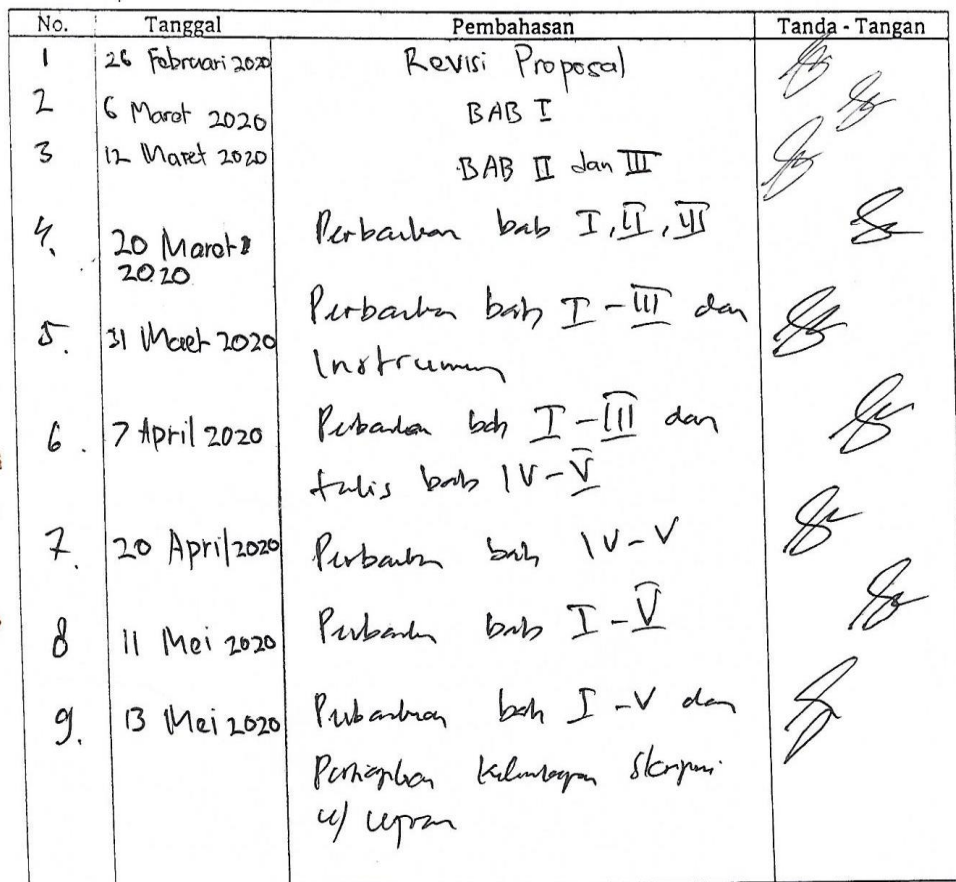 No. Tanggal Pembahasan Tanda - Tangan
1 26 Februari 2020 Revisi Proposal
2 6 Maret 2020 BAB I
3 12 Maret 2020 BAB II dan III
4. 20 Maret 2020 Perbaikan bab I, II, III
5. 31 Maret 2020 Perbaikan bab I - III dan
Instrumen
6. 7 April 2020 Perbaikan bab I - III dan
tulis bab IV - V
7. 20 April 2020 Perbaikan bab IV - V
8 11 Mei 2020 Perbaikan bab I - V
9. 13 Mei 2020 Perbaikan bab I - V dan
Persiapkan Kelengkapan Skripsi
u/ ujian